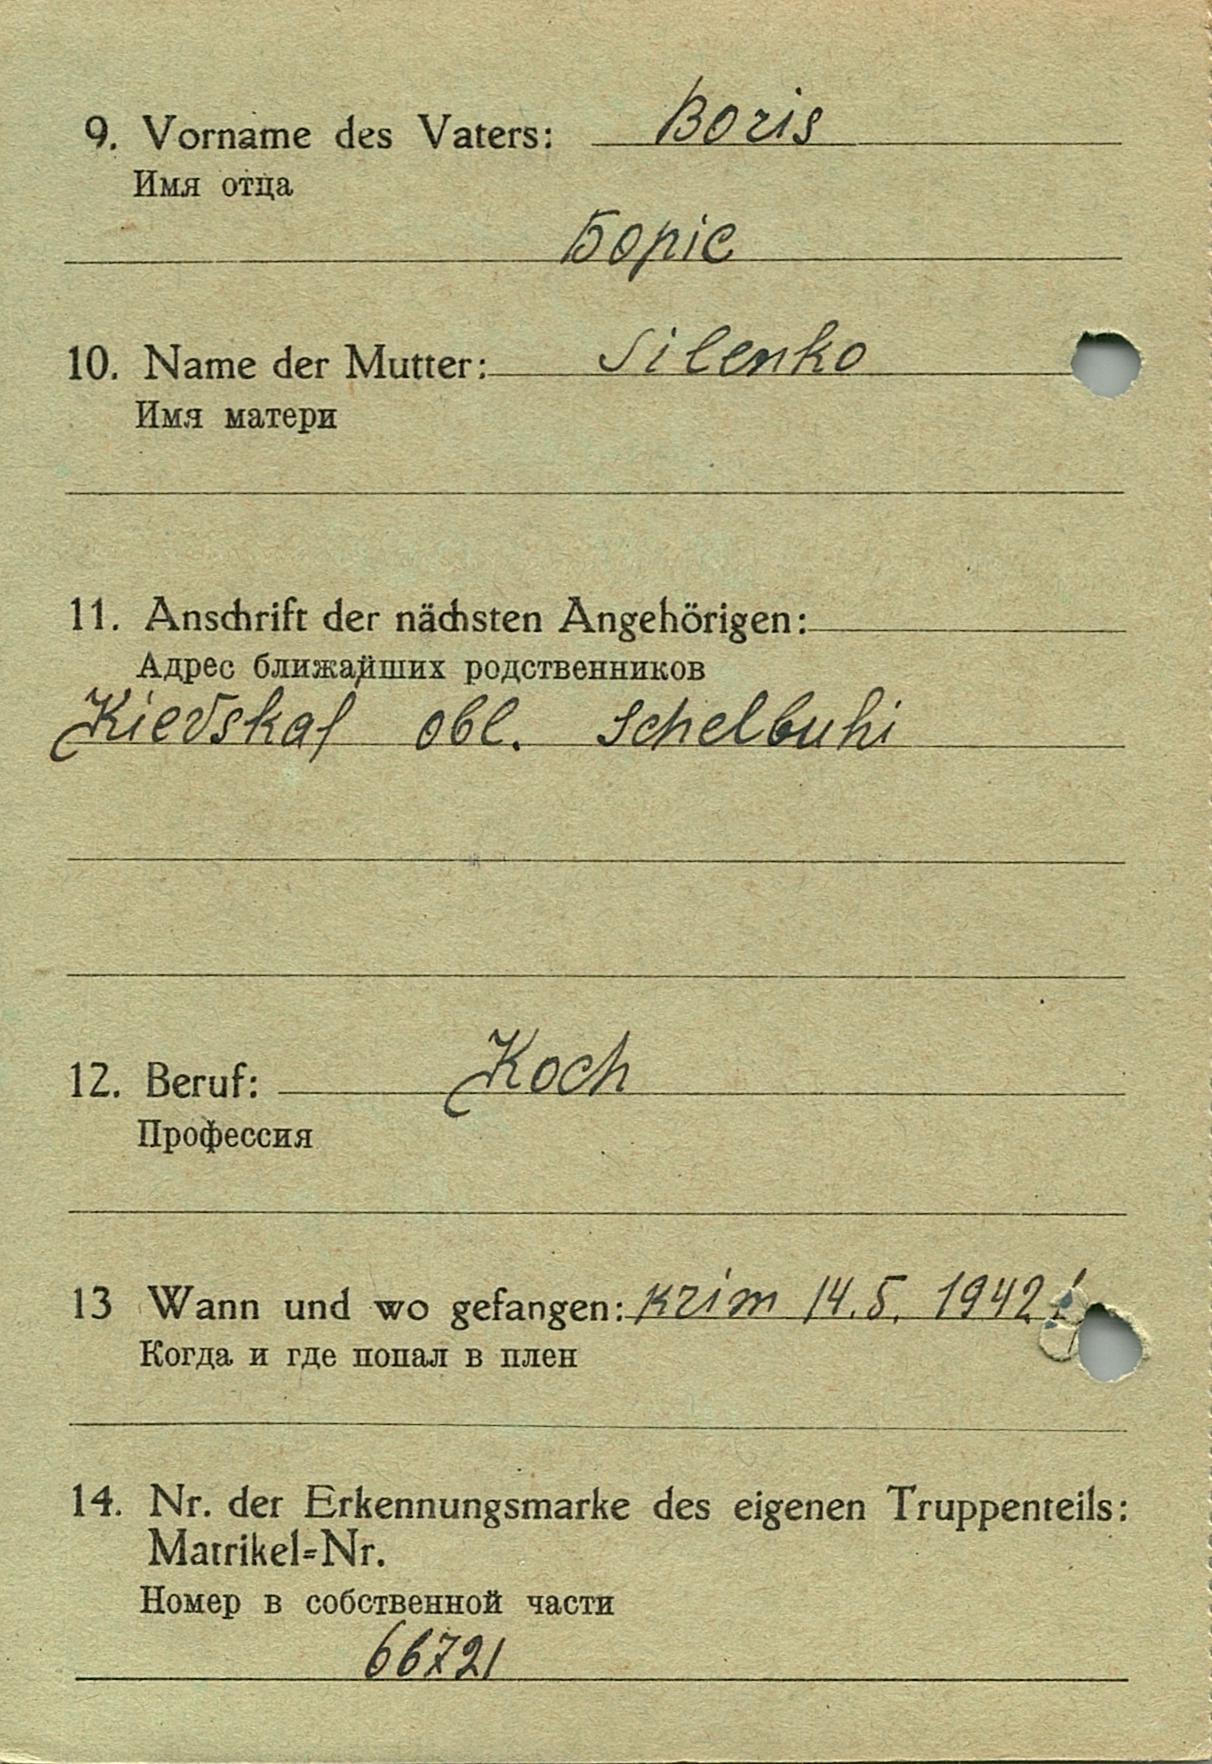 9. Vorname des Vaters: Boris
Имя отца
Боріс
10. Name der Mutter: Silenko
Имя матери
11. Anschrift der nächsten Angehörigen:
Адрес ближайших родственников
Kievskaj obl. Schelbuhi
12. Beruf: Koch
Профессия
13 Wann und wo gefangen: Krim 14.5. 1942
Когда и где попал в плен
14. Nr. der Erkennungsmarke des eigenen Truppenteils:
Matrikel=Nr.
Номер в собственной части
66721